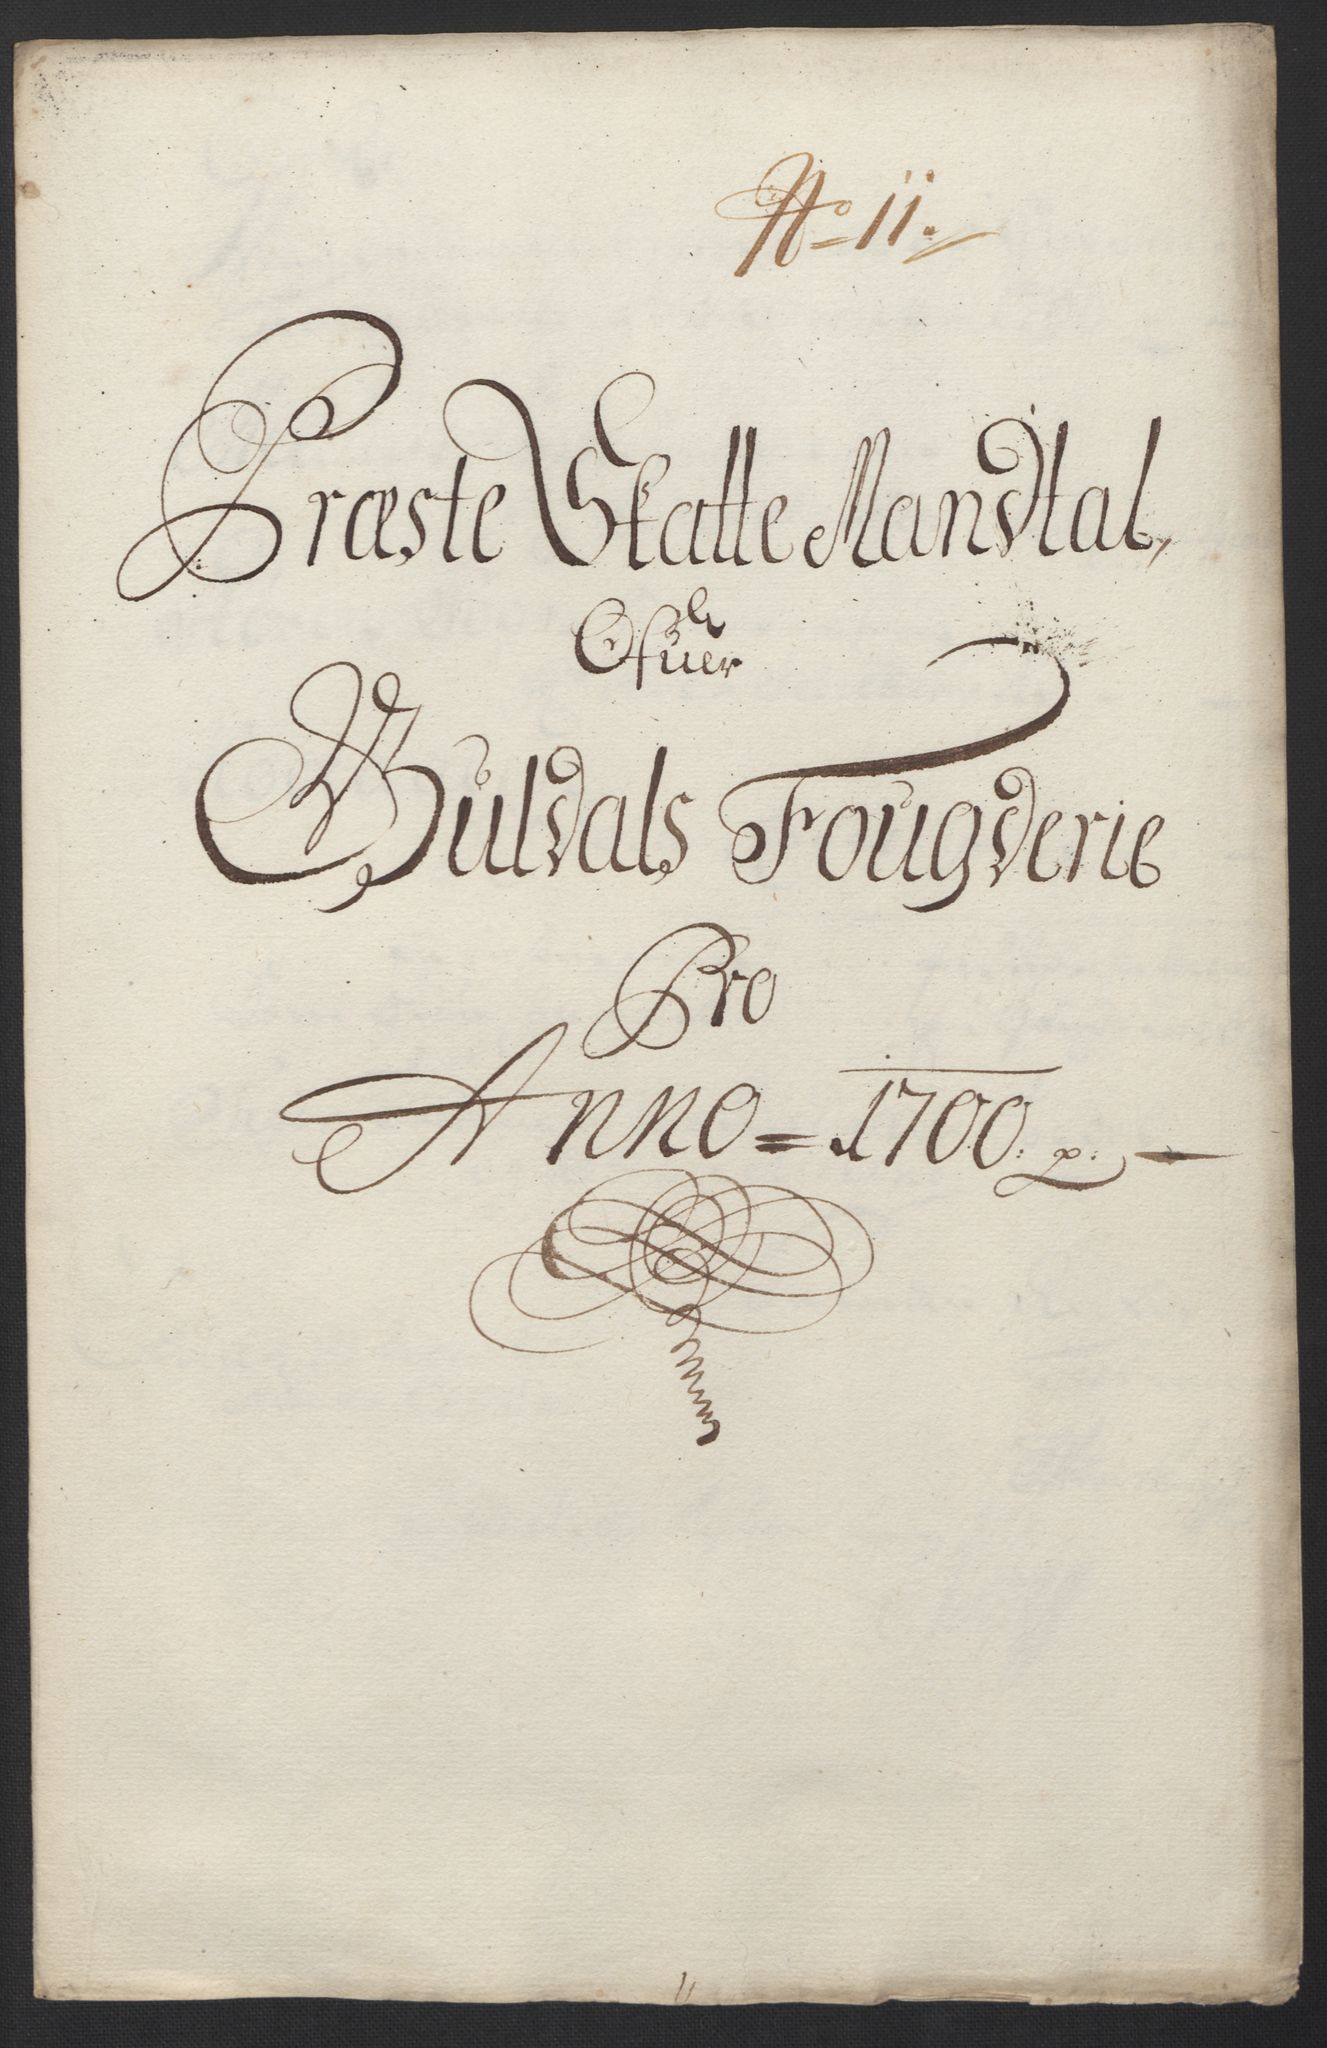 No 11.
Præste Skatte Mandtal,
Ofuer
Guldals Fougderie
Pro
Anno = 1700. p: —
11